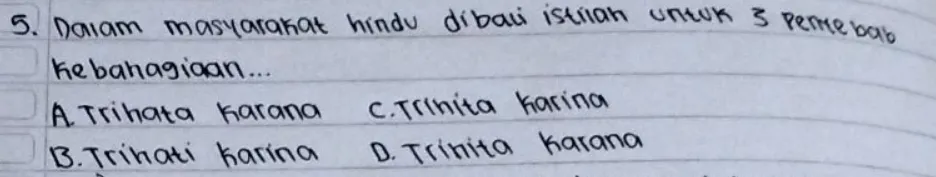 5. Dalam masyarakat hindu dibali istilah untuk 3 Penyebab
Kebahagiaan...
A. Trihata Karana C. Trihita Karina
B. Trihati Karina D. Trihita Karana